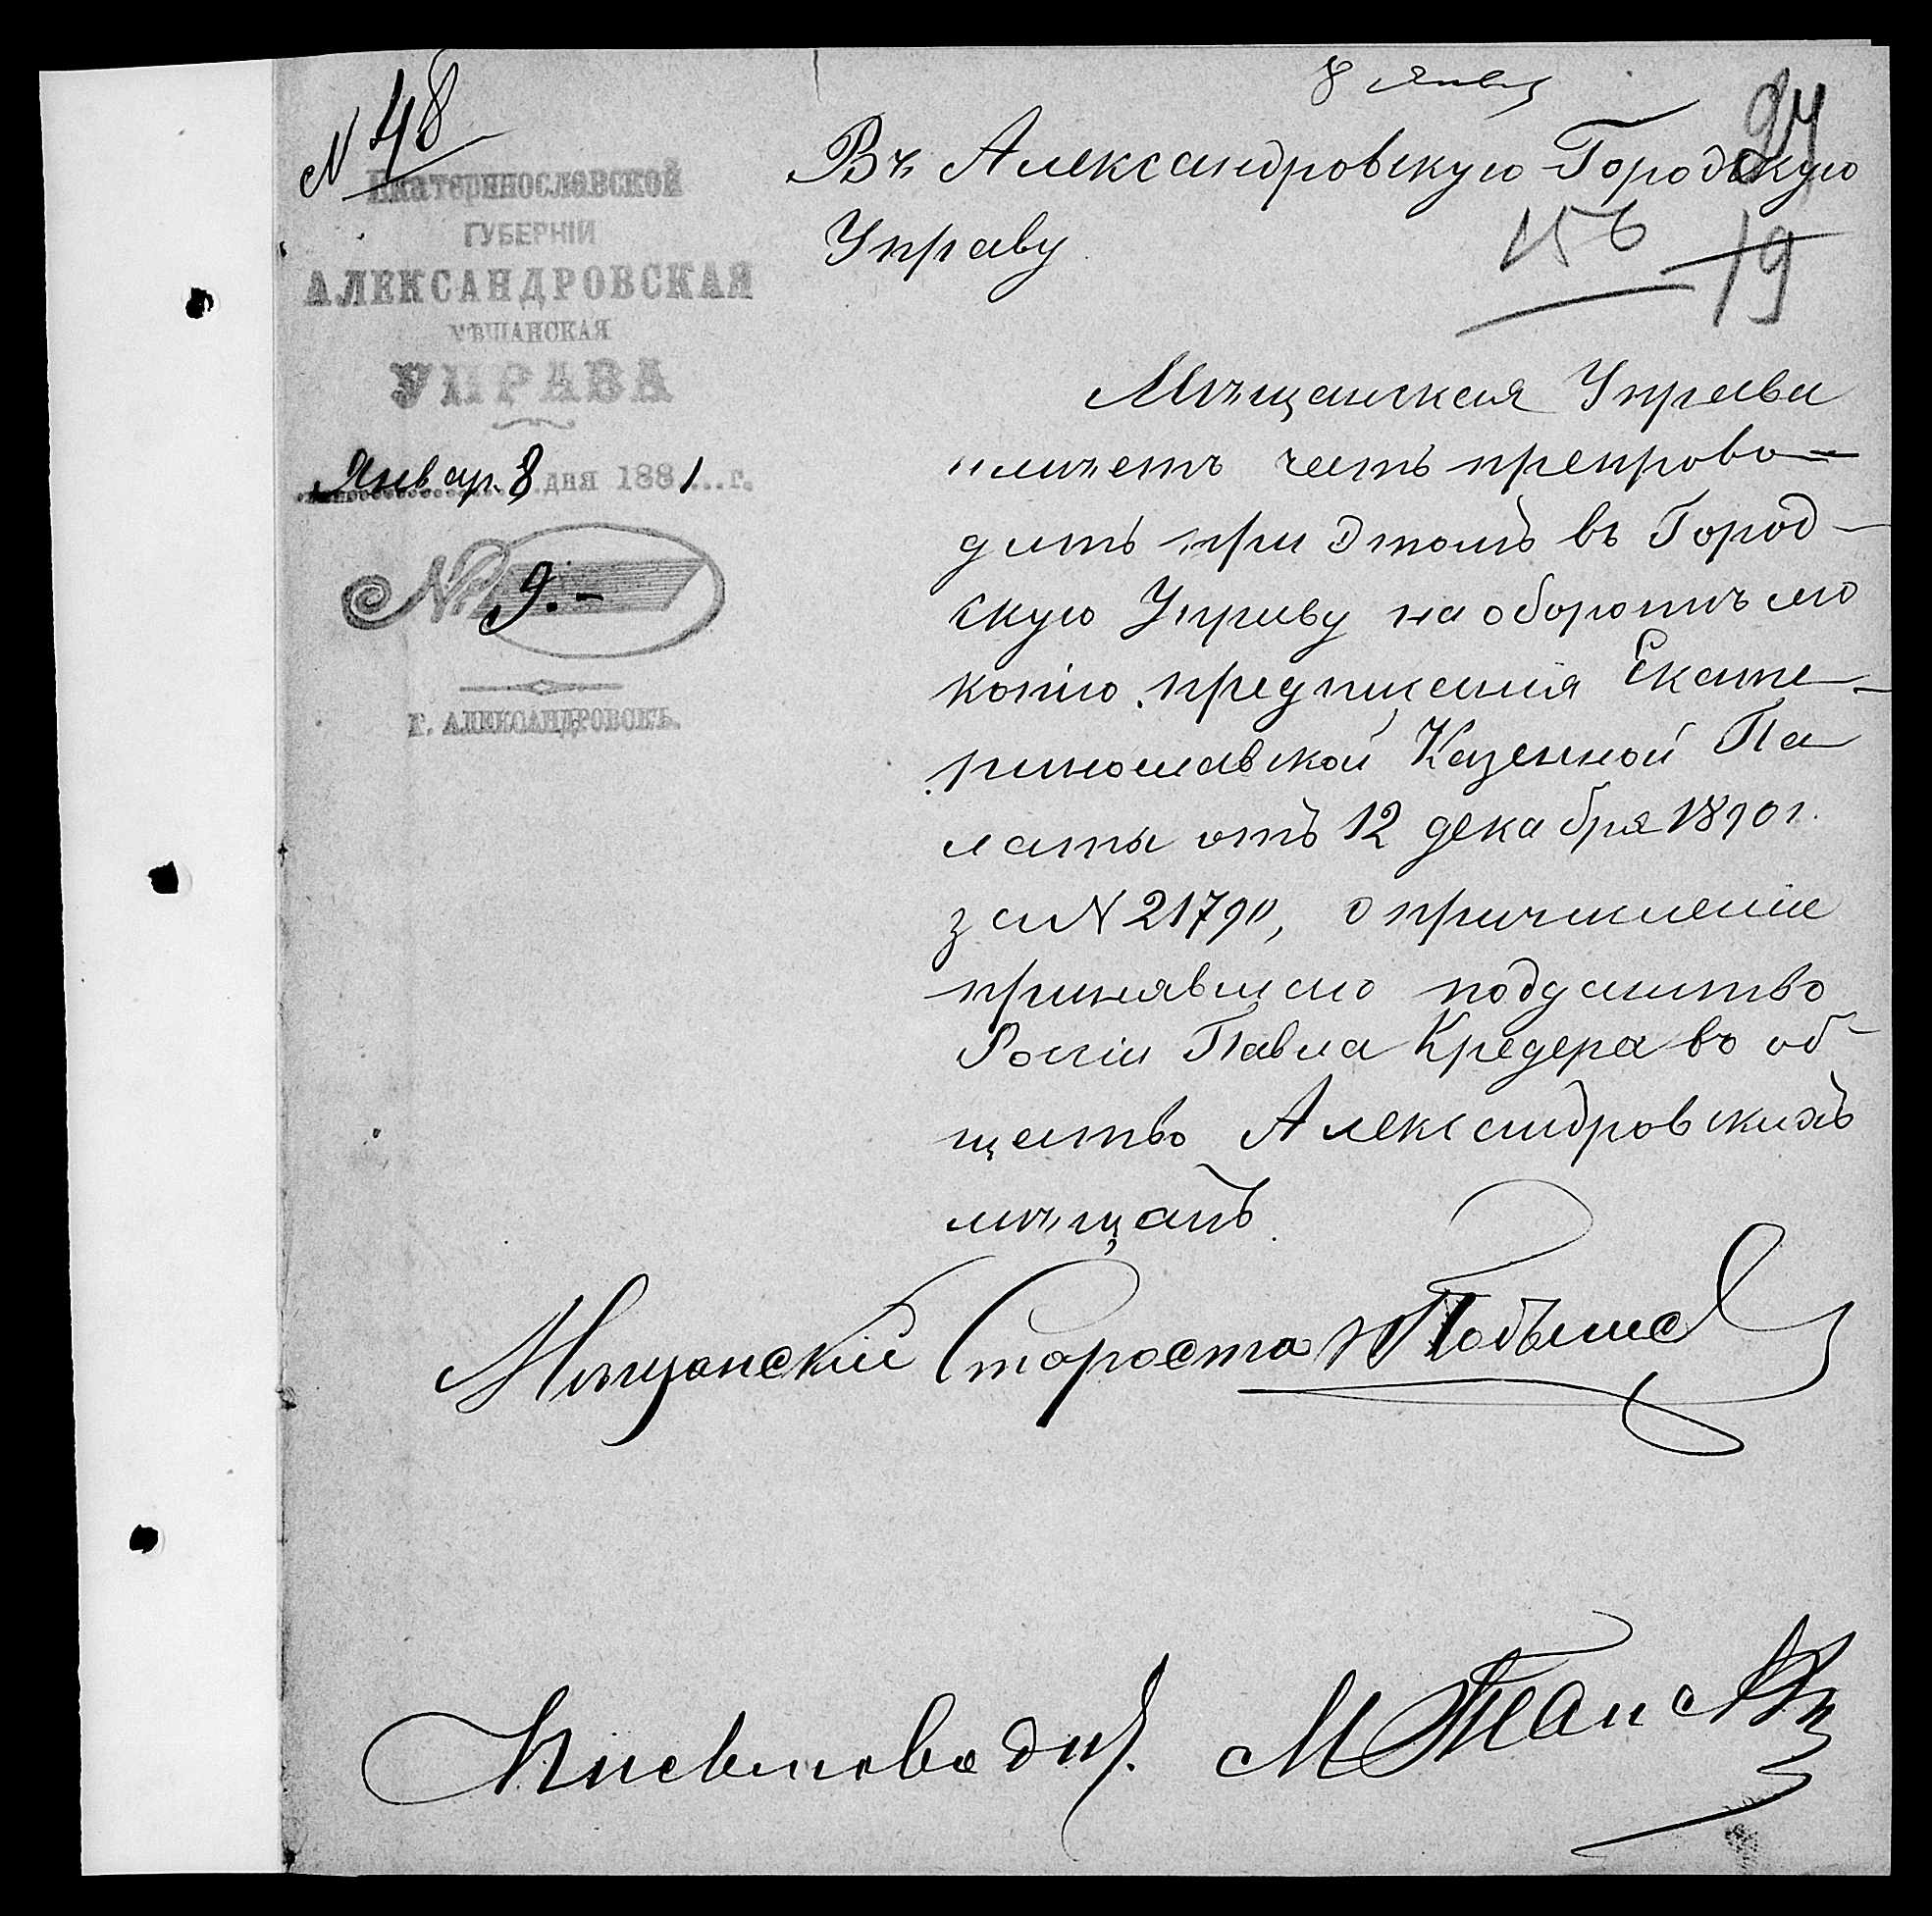 8 Янв
N 48
Екатеринославской
ГУБЕРНІИ
АЛЕКСАНДРОВСКАЯ
МѢЩАНСКАЯ
УПРАВА
Январ. 8 дня 1881 г.
№ 9.-
Г. АЛЕКСАНДРОВСКЪ.
24
Въ Александровскую Городскую
Управу
156
19
Мѣщанская Управа
имѣетъ честь препрово-
дить при этомъ въ Город-
скую Управу на оборотѣ сего
копію предписанія Екате-
ринославской Казенной Па
латы отъ 12 декабря 1890 г.
за N 21790, о причисленіе
принявшаго подданство
Россіи Павла Кредера въ об-
щество Александровскихъ
мѣщанъ.
Мѣщанскій Староста
Письмоводит.